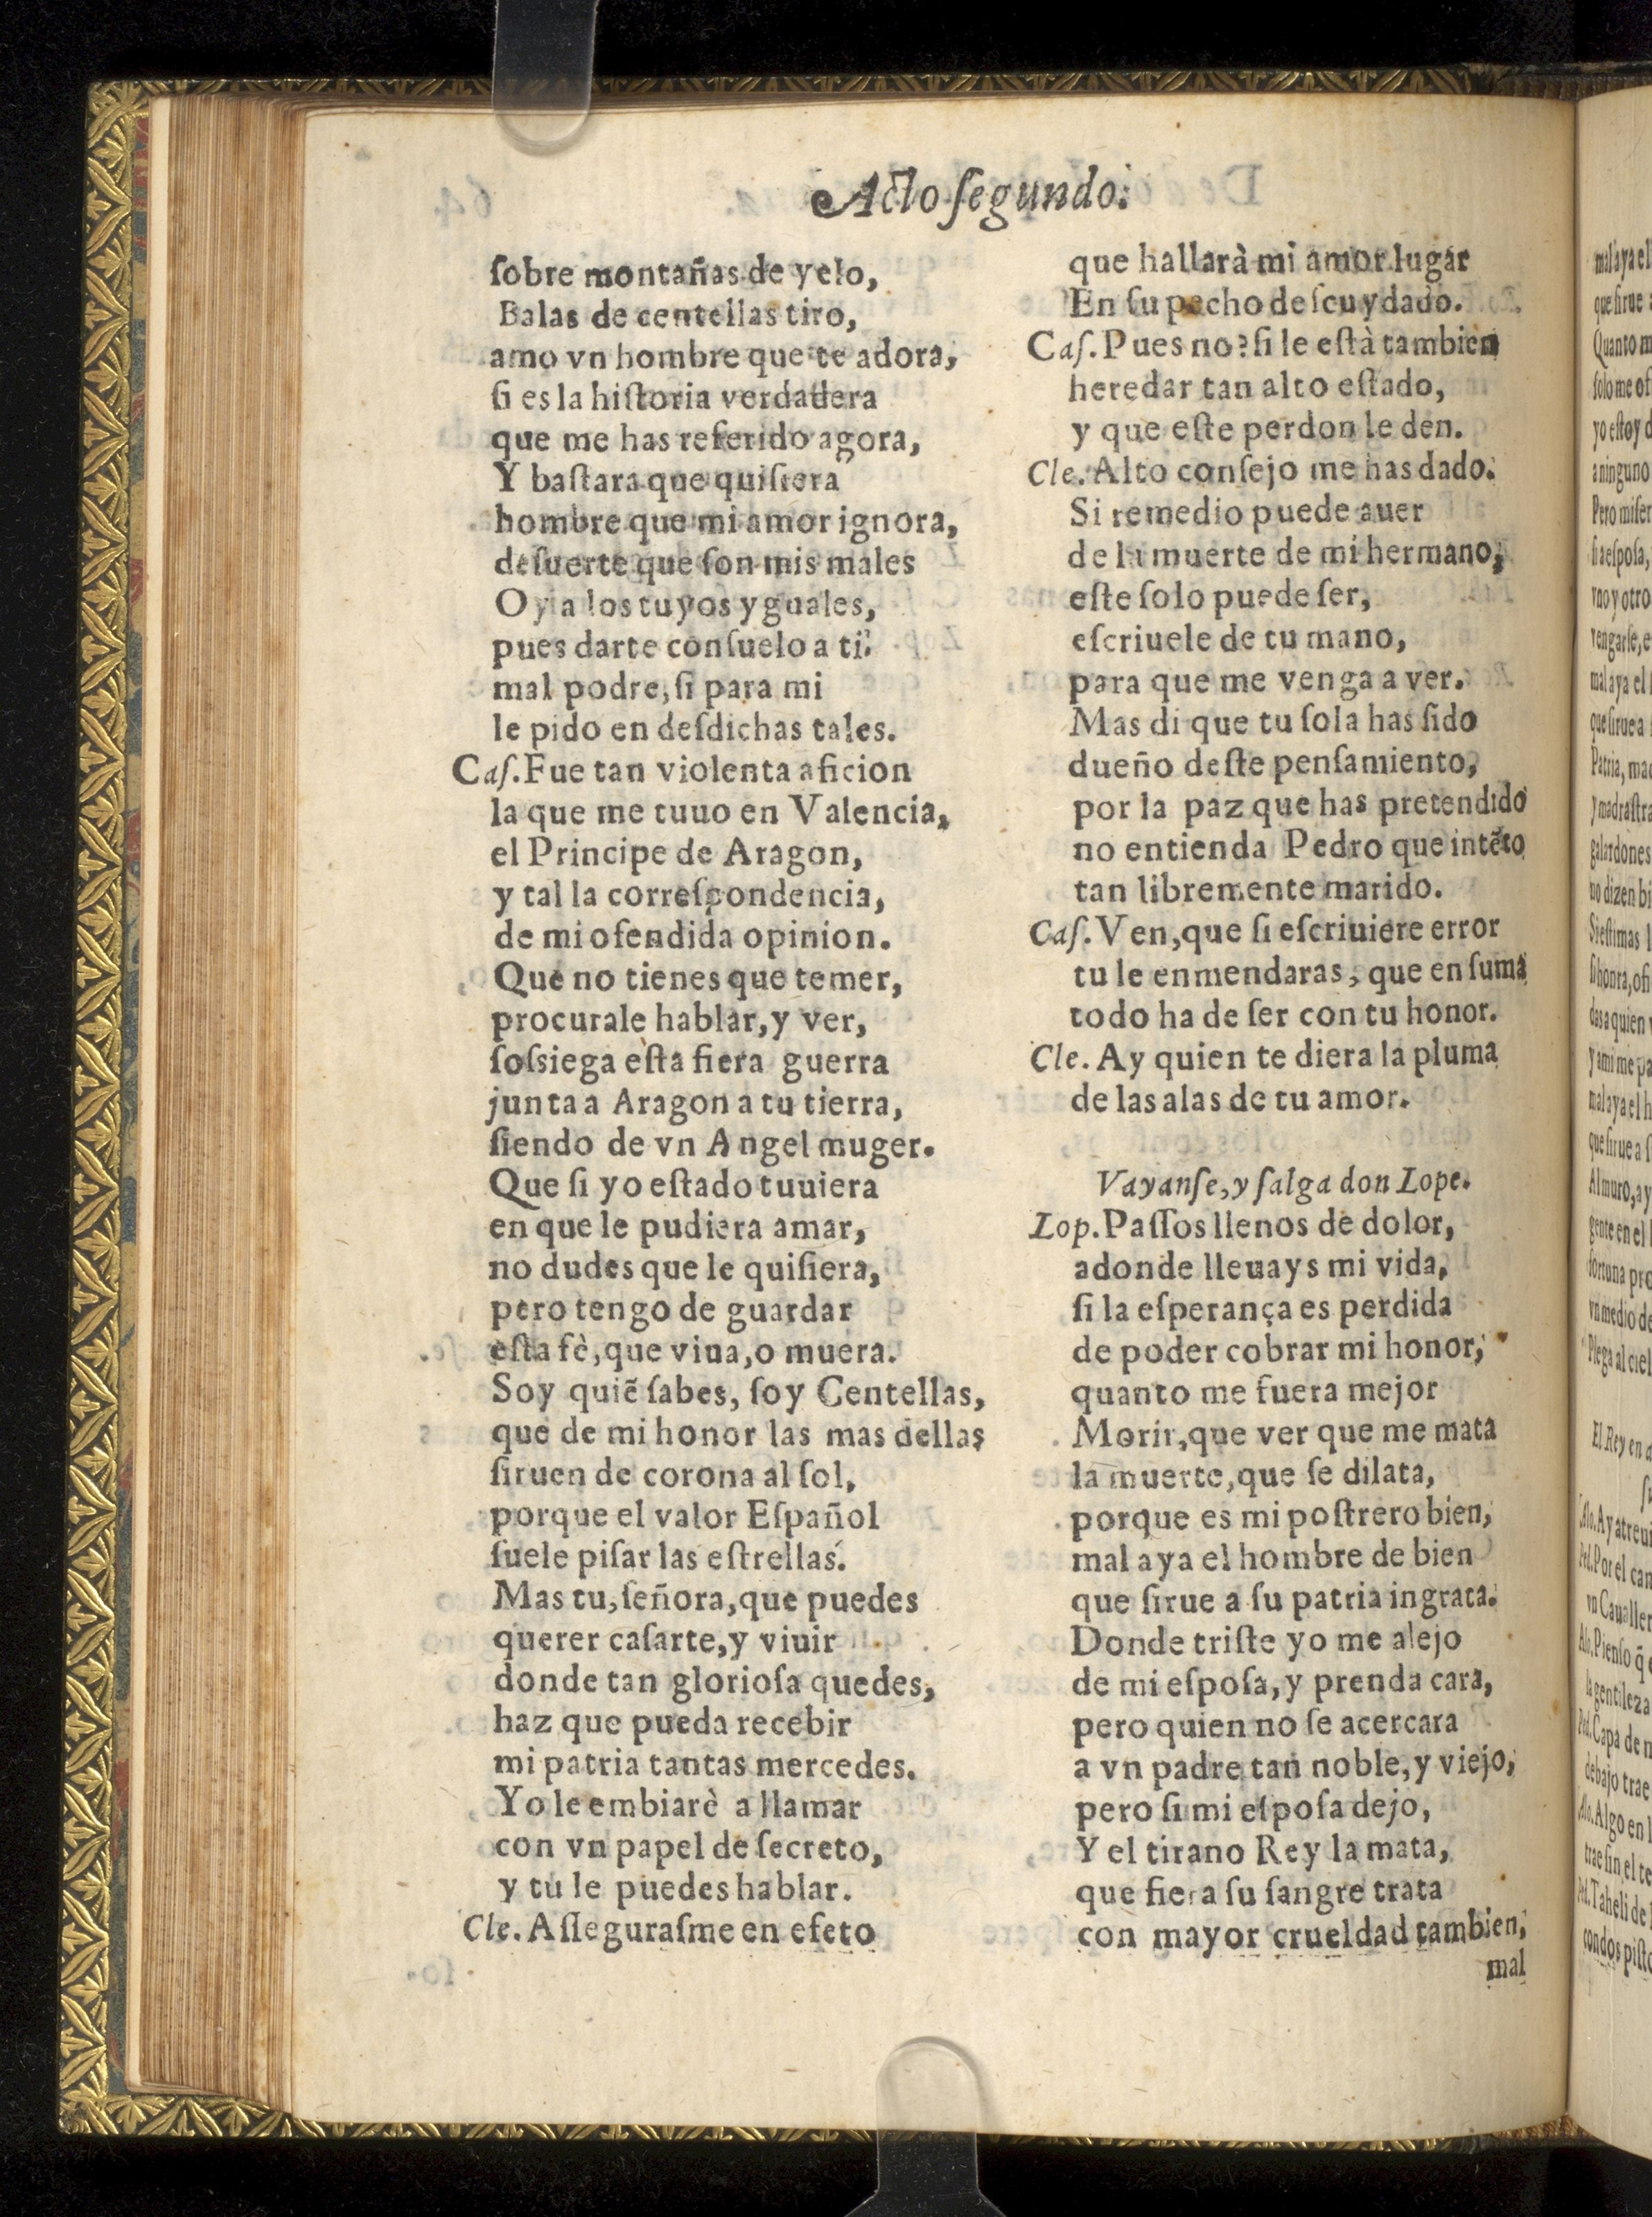 Acto ſegundo.
ſobre montañas de yelo,
Balas de centellas tiro,
amo vn hombre que te adora,
ſi es la hiſtoria verdadera
que me has referido agora,
Y baſtara que quiſiera
hombre que mi amor ignora,
deſuerte que ſon mis males
Oy a los tuyos yguales,
pues darte conſuelo a ti,
mal podre, ſi para mi
le pido en deſdichas tales.
Caſ. Fue tan violenta aficion
la que me tuuo en Valencia,
el Principe de Aragon,
y tal la correſpondencia,
de mi ofendida opinion.
Que no tienes que temer,
procurale hablar, y ver,
ſoſsiega eſta fiera guerra
junta a Aragon a tu tierra,
ſiendo de vn Angel muger.
Que ſi yo eſtado tuuiera
en que le pudiera amar,
no dudes que le quiſiera,
pero tengo de guardar
eſta fè, que viua, o muera.
Soy quiẽ ſabes, ſoy Centellas,
que de mi honor las mas dellas
ſiruen de corona al ſol,
porque el valor Eſpañol
ſuele piſar las eſtrellas.
Mas tu, ſeñora, que puedes
querer caſarte, y viuir
donde tan glorioſa quedes,
haz que pueda recebir
mi patria tantas mercedes.
Yo le embiarè a llamar
con vn papel de ſecreto,
y tu le puedes hablar.
Cle. Aſſeguraſme en efeto
que hallarà mi amor lugar
En ſu pecho deſcuydado.
Caſ. Pues no? ſi le eſtà tambien
heredar tan alto eſtado,
y que eſte perdon le den.
Cle. Alto conſejo me has dado.
Si remedio puede auer
de la muerte de mi hermano,
eſte ſolo puede ſer,
eſcriuele de tu mano,
para que me venga a ver.
Mas di que tu ſola has ſido
dueño deſte penſamiento,
por la paz que has pretendido
no entienda Pedro que intẽto
tan libremente marido.
Caſ. Ven, que ſi eſcriuiere error
tu le enmendaras, que en ſuma
todo ha de ſer con tu honor.
Cle. Ay quien te diera la pluma
de las alas de tu amor.
Vayanſe, y ſalga don Lope.
Lop. Paſſos llenos de dolor,
adonde lleuays mi vida,
ſi la eſperança es perdida
de poder cobrar mi honor,
quanto me fuera mejor
Morir, que ver que me mata
la muerte, que ſe dilata,
porque es mi poſtrero bien,
mal aya el hombre de bien
que ſirue a ſu patria ingrata.
Donde triſte yo me alejo
de mi eſpoſa, y prenda cara,
pero quien no ſe acercara
a vn padre tan noble, y viejo,
pero ſi mi eſpoſa dejo,
Y el tirano Rey la mata,
que fiera ſu ſangre trata
con mayor crueldad tambien,
mal